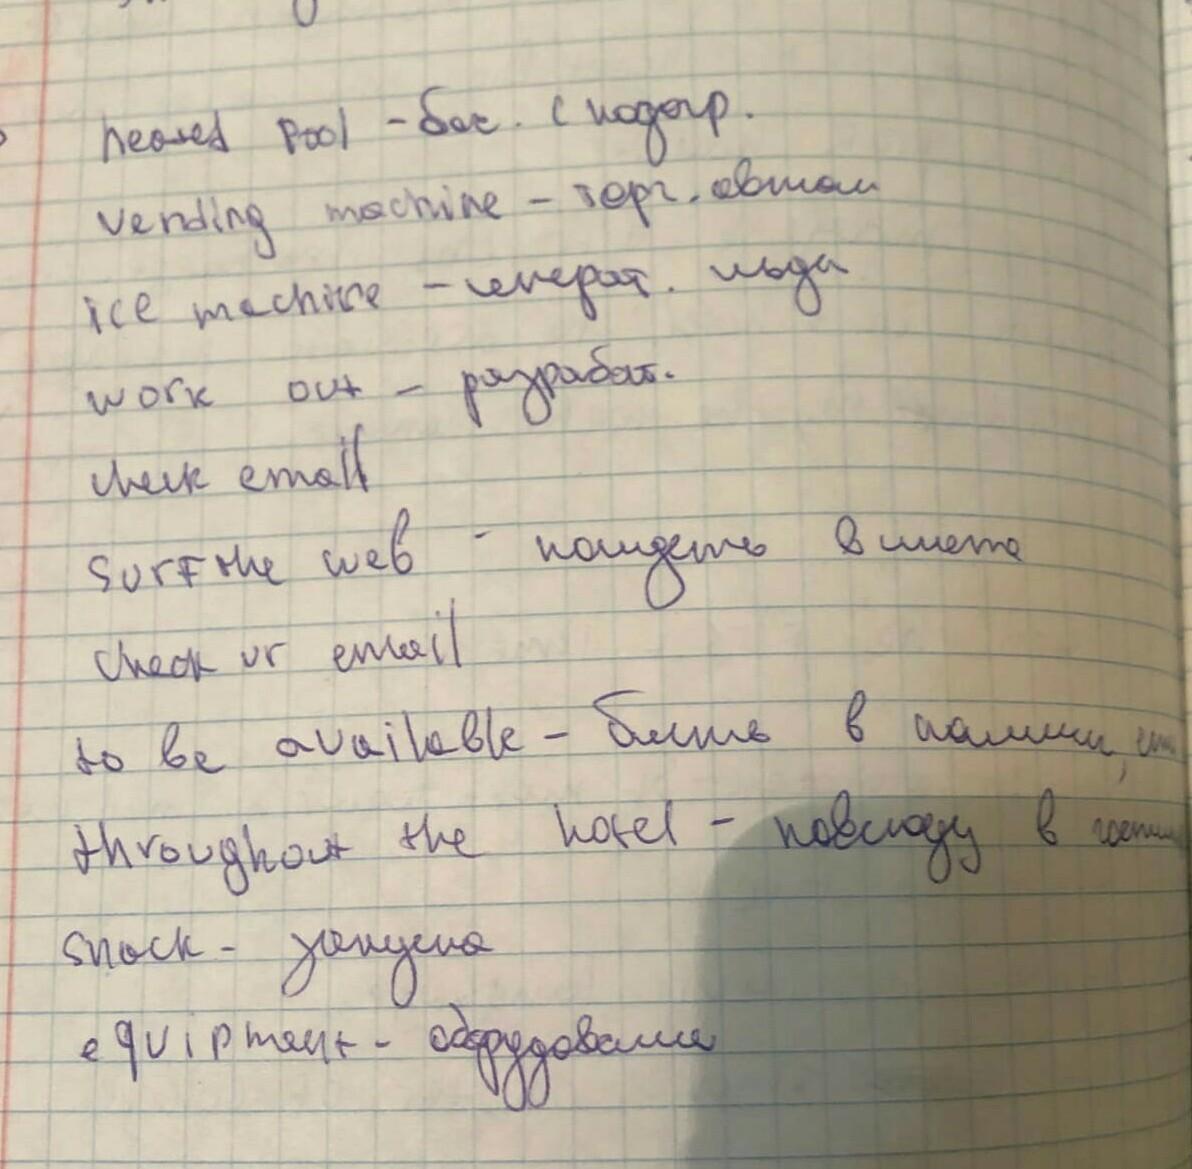 heated pool - бас. с подогр.
vending machine - торг. автом
ice machine - генерат. льда
work out - разработ.
check email
surf the web - найдеть в инете
check ur email
to be available - быть в наличии,
throughout the hotel - повсюду в гости
snack - закуска
equipment - оборудование